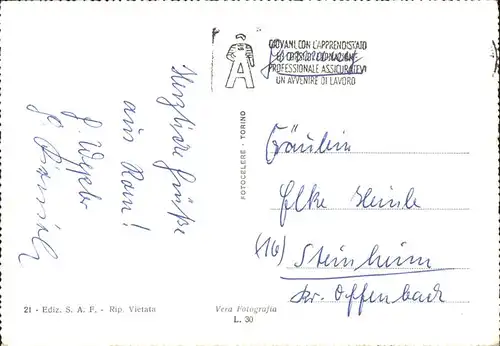 Herzliche Grüße
aus Rom!
GIOVANI CON L'APPRENDISTATO
PROFESSIONALE ASSICURATEVI
UN AVVENIRE DI LAVORO
A
FOTOCELERE - TORINO
Fräulein
Elke Heinle
(16) Steinheim
Kr. Offenbach
21 - Ediz. S. A. F. - Rip. Vietata
Vera Fotografia
L. 30